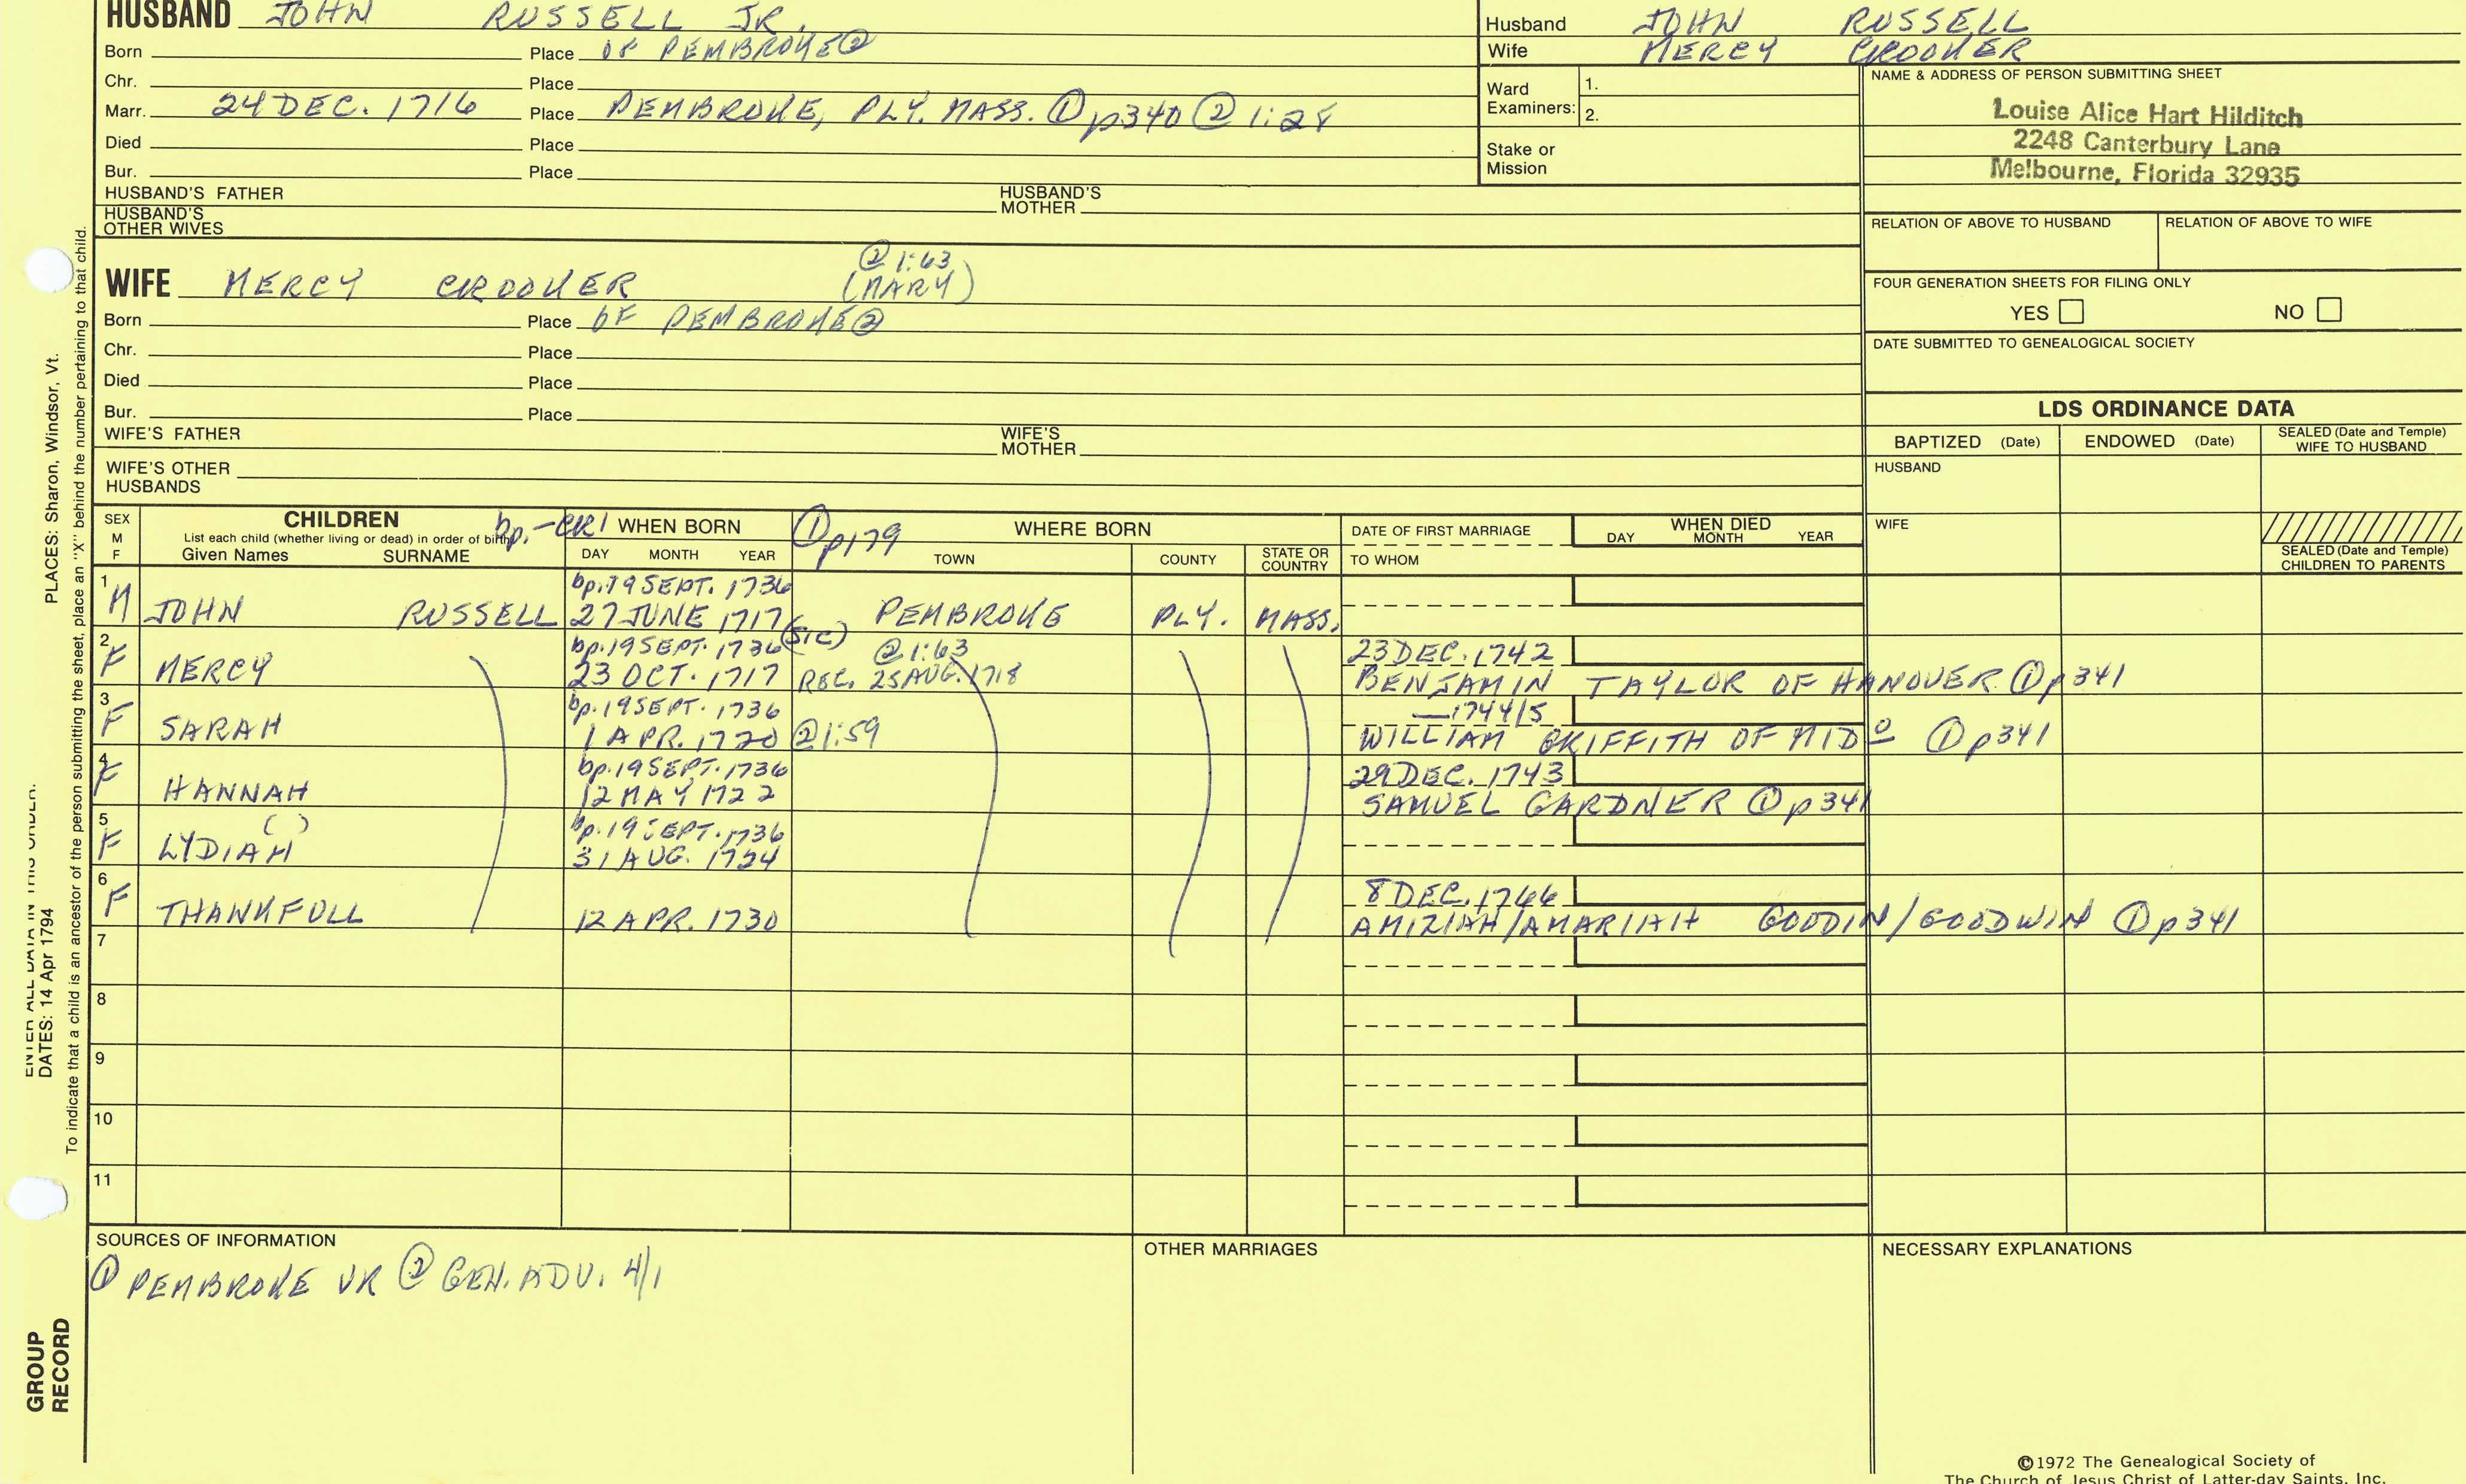 HUSBAND JOHN RUSSELL JR.
Born Place OF PEMBROKE②
Chr. Place
Marr. 24 DEC. 1716 Place PEMBROKE, PLY. MASS. ① p340 ② 1:28
Died Place
Bur. Place
HUSBAND'S FATHER HUSBAND'S MOTHER
HUSBAND'S OTHER WIVES
Husband JOHN RUSSELL
Wife MERCY CROOKER
Ward Examiners: 1.
2.
Stake or Mission
NAME & ADDRESS OF PERSON SUBMITTING SHEET
Louise Alice Hart Hilditch
2248 Canterbury Lane
Melbourne, Florida 32935
RELATION OF ABOVE TO HUSBAND RELATION OF ABOVE TO WIFE
FOUR GENERATION SHEETS FOR FILING ONLY
YES NO
DATE SUBMITTED TO GENEALOGICAL SOCIETY
② 1:63
WIFE MERCY CROOKER (MARY)
Born Place OF PEMBROKE②
Chr. Place
Died Place
Bur. Place
WIFE'S FATHER WIFE'S MOTHER
WIFE'S OTHER HUSBANDS
LDS ORDINANCE DATA
BAPTIZED (Date) ENDOWED (Date) SEALED (Date and Temple) WIFE TO HUSBAND
HUSBAND
WIFE
SEALED (Date and Temple) CHILDREN TO PARENTS
SEX M F
CHILDREN
List each child (whether living or dead) in order of birth
Given Names SURNAME
bp.-CR1 WHEN BORN ① p179 WHERE BORN DATE OF FIRST MARRIAGE WHEN DIED
DAY MONTH YEAR TOWN COUNTY STATE OR COUNTRY TO WHOM DAY MONTH YEAR
1 bp. 19 SEPT. 1736
M JOHN RUSSELL 27 JUNE 1717 (SIC) PEMBROKE PLY. MASS.
2 bp. 19 SEPT. 1736 ② 1:63 23 DEC. 1742
F MERCY 23 OCT. 1717 REC. 25 AUG. 1718 BENJAMIN TAYLOR OF HANOVER ① p341
3 bp. 19 SEPT. 1736 —1744/5
F SARAH 1 APR. 1720 ② 1:59 WILLIAM GRIFFITH OF MIDo ① p341
4 bp. 19 SEPT. 1736 29 DEC. 1743
F HANNAH 12 MAY 1722 SAMUEL GARDNER ① p341
5 ( ) bp. 19 SEPT. 1736
F LYDIAH 31 AUG. 1724
6 8 DEC. 1766
F THANKFULL 12 APR. 1730 AMIZIAH/AMARIAH GOODIN/GOODWIN ① p341
7
8
9
10
11
SOURCES OF INFORMATION
① PEMBROKE VR ② GEN. ADV. 4/1
OTHER MARRIAGES
NECESSARY EXPLANATIONS
©1972 The Genealogical Society of
The Church of Jesus Christ of Latter-day Saints, Inc.
ENTER ALL DATA IN THIS ORDER:
DATES: 14 Apr 1794 PLACES: Sharon, Windsor, Vt.
To indicate that a child is an ancestor of the person submitting the sheet, place an "X" behind the number pertaining to that child.
GROUP
RECORD